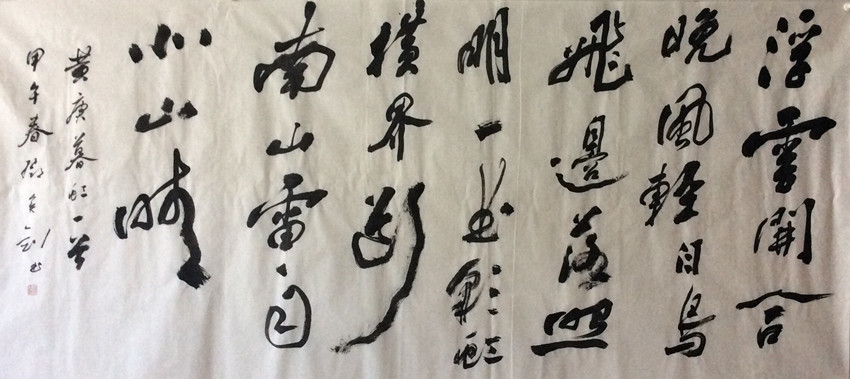 浮雲開合
晚風輕白鳥
飛邊落照
明一曲彩虹
橫界斷
南山雷雨
北山晴
黄庚暮虹一首
甲午春